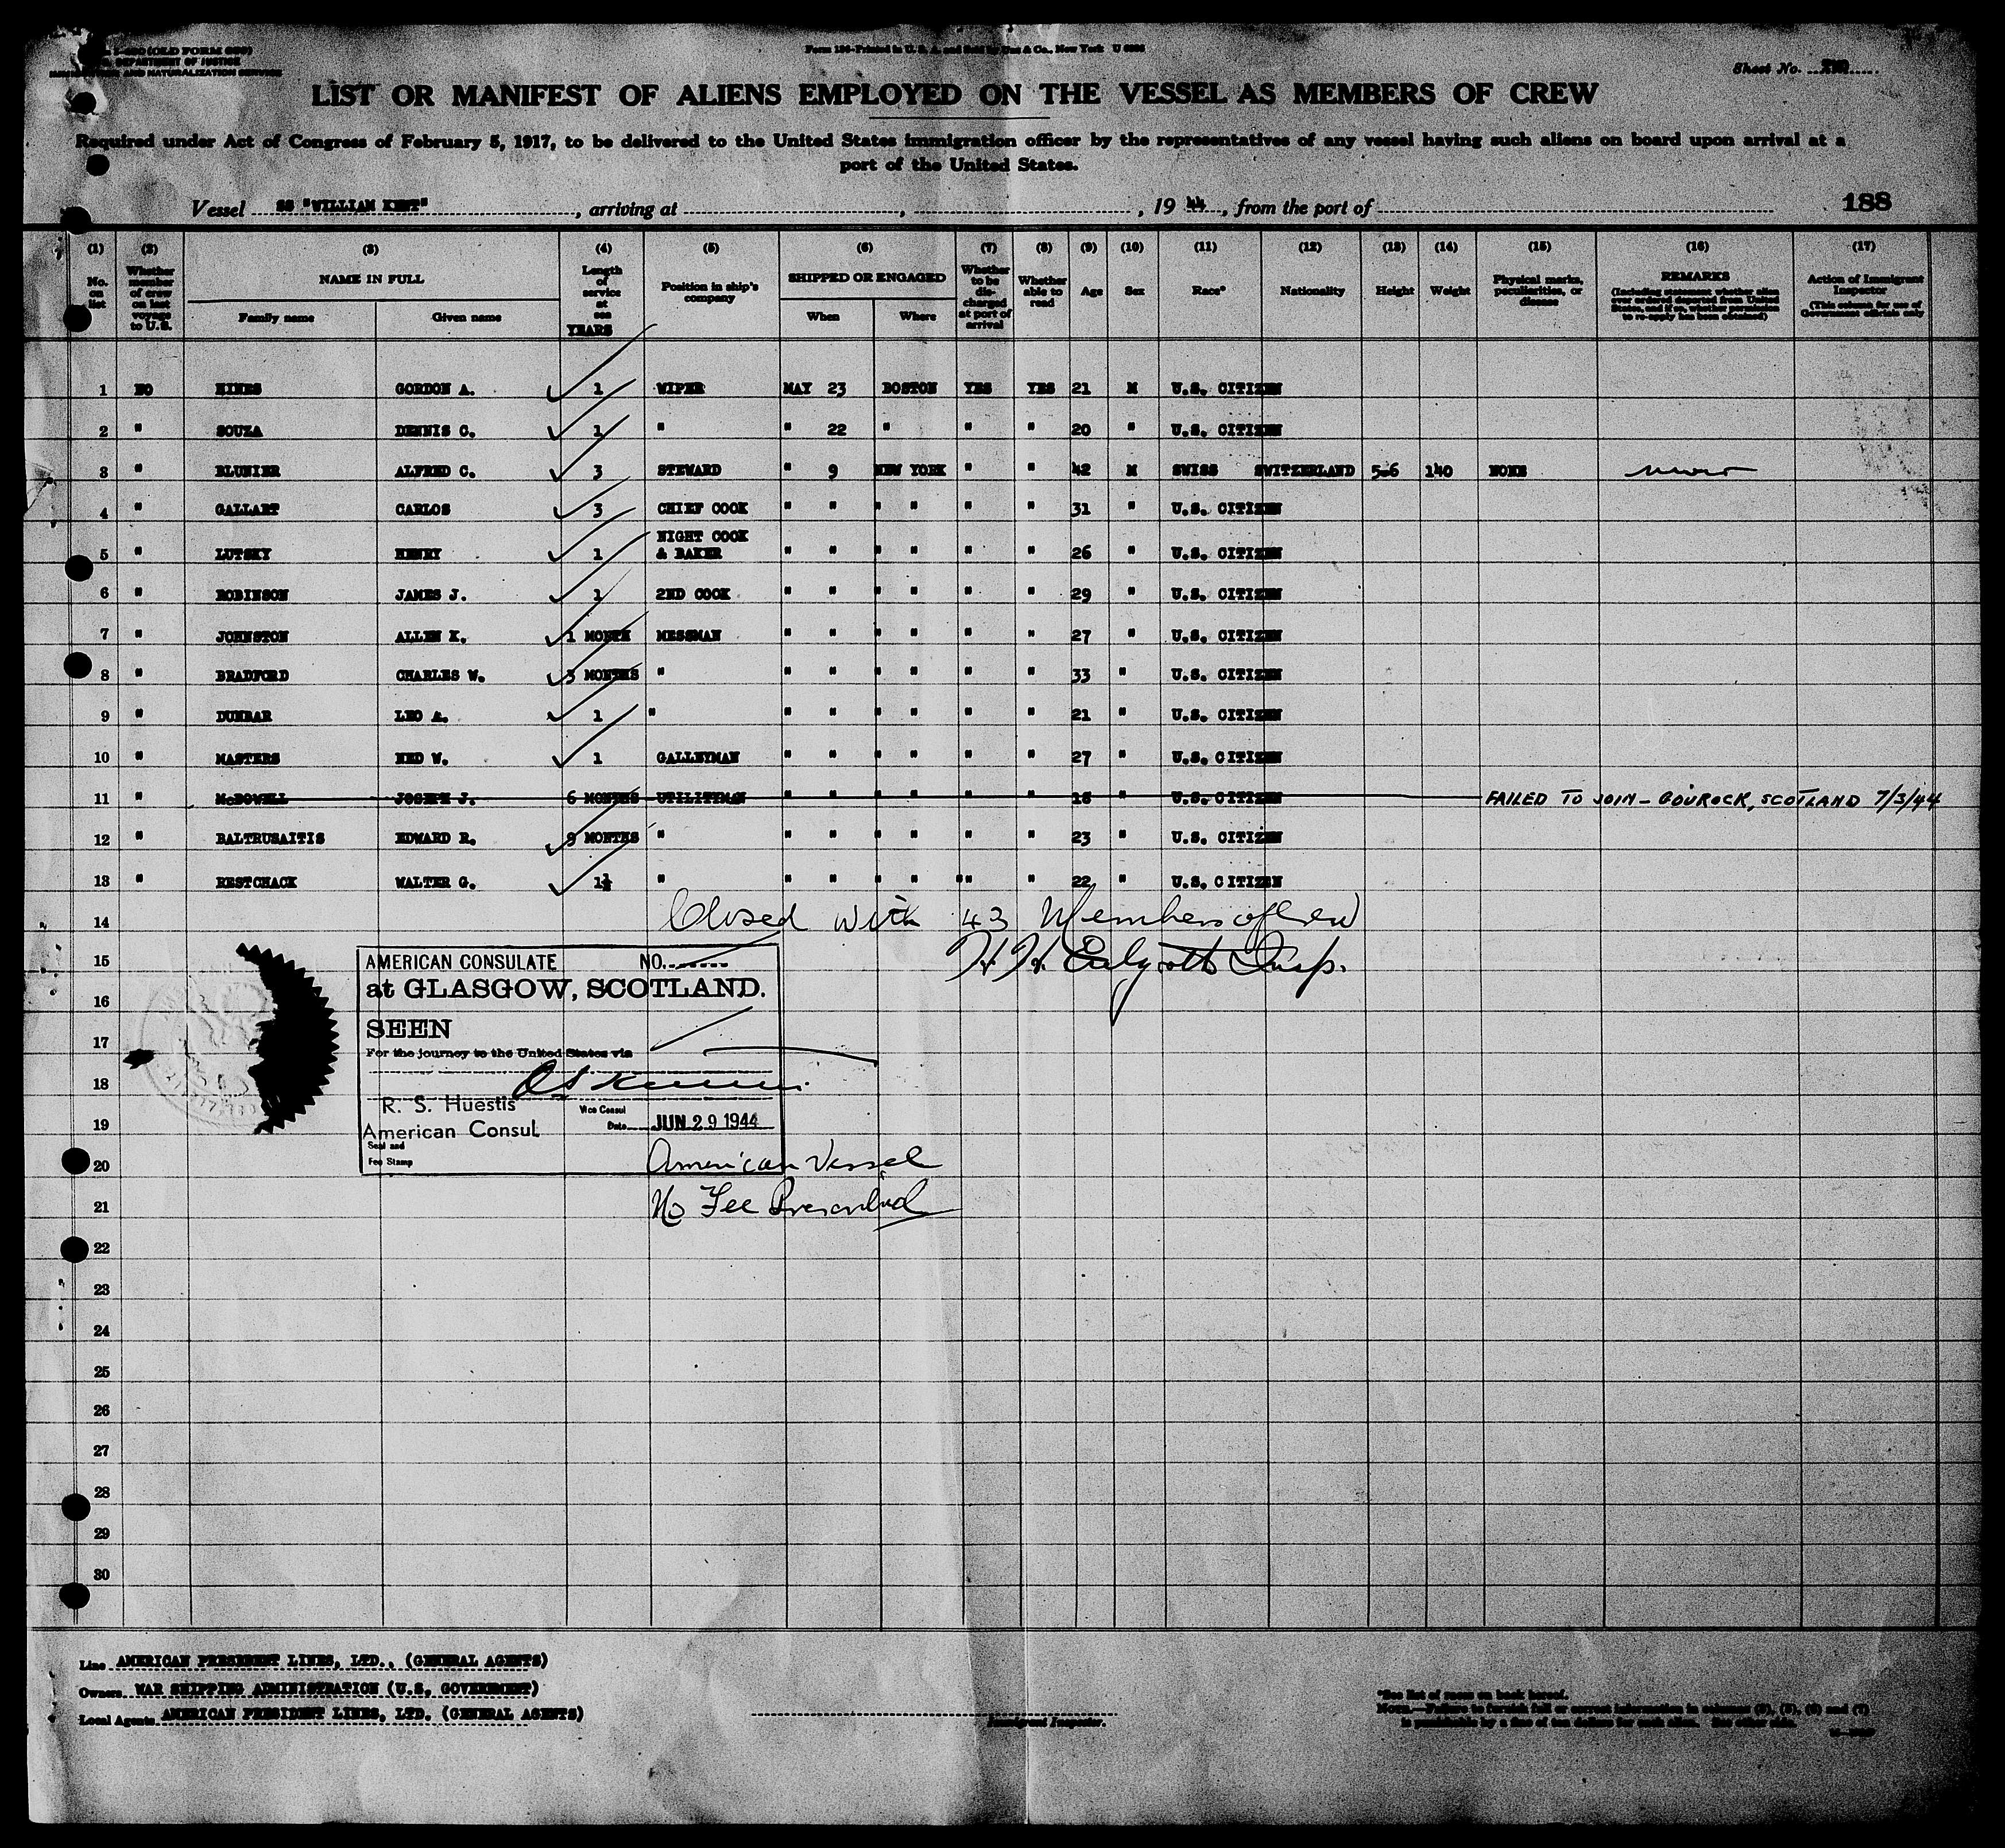 (OLD FORM 689)
DEPARTMENT OF JUSTICE
IMMIGRATION AND NATURALIZATION SERVICE
Sheet No.
LIST OR MANIFEST OF ALIENS EMPLOYED ON THE VESSEL AS MEMBERS OF CREW
Required under Act of Congress of February 5, 1917, to be delivered to the United States immigration officer by the representatives of any vessel having such aliens on board upon arrival at a
port of the United States.
Vessel SS "WILLIAM KENT", arriving at , , 19 44, from the port of 188
(1) (2) (3) (4) (5) (6) (7) (8) (9) (10) (11) (12) (13) (14) (15) (16) (17)
No. on list
Whether member of crew on last voyage to U.S.
NAME IN FULL
Family name Given name
Length of service at sea
YEARS
Position in ship's company
SHIPPED OR ENGAGED
When Where
Whether to be discharged at port of arrival
Whether able to read
Age
Sex
Race*
Nationality
Height
Weight
Physical marks, peculiarities, or disease
REMARKS
(Including statement whether alien ever ordered deported from United States, and if so, whether permission to re-apply has been obtained)
Action of Immigrant Inspector
(This column for use of Government officials only
1 NO HINES GORDON A. 1 WIPER MAY 23 BOSTON YES YES 21 M U.S. CITIZEN
2 " SOUZA DENNIS C. 1 " " 22 " " " 20 " U.S. CITIZEN
3 " BLUNIER ALFRED C. 3 STEWARD " 9 NEW YORK " " 42 M SWISS SWITZERLAND 5-6 140 NONE
4 " GALLART CARLOS 3 CHIEF COOK " " " " " " 31 " U.S. CITIZEN
5 " LUTSKY HENRY 1 NIGHT COOK & BAKER " " " " " " 26 " U.S. CITIZEN
6 " ROBINSON JAMES J. 1 2ND COOK " " " " " " 29 " U.S. CITIZEN
7 " JOHNSTON ALLEN K. 1 MONTH MESSMAN " " " " " " 27 " U.S. CITIZEN
8 " BRADFORD CHARLES W. 3 MONTHS " " " " " " " 33 " U.S. CITIZEN
9 " DUNBAR LEO A. 1 " " " " " " " 21 " U.S. CITIZEN
10 " MASTERS NED W. 1 GALLEYMAN " " " " " " 27 " U.S. CITIZEN
11 " McDOWELL JOSEPH J. 6 MONTHS UTILITYMAN " " " " " " 18 " U.S. CITIZEN FAILED TO JOIN - GOUROCK, SCOTLAND 7/3/44
12 " BALTRUSAITIS EDWARD R. 9 MONTHS " " " " " " " 23 " U.S. CITIZEN
13 " RESTCHACK WALTER G. 1½ " " " " " "" " 22 " U.S. CITIZEN
14 Closed with 43 Members of Crew
15
16
17
18
19
20
21
22
23
24
25
26
27
28
29
30
AMERICAN CONSULATE NO.
at GLASGOW, SCOTLAND.
SEEN
For the journey to the United States via
R. S. Huestis Vice Consul
American Consul Date JUN 29 1944
Seal and
Fee Stamp
American Vessel
No Fee Prescribed
Line AMERICAN PRESIDENT LINES, LTD., (GENERAL AGENTS)
Owners WAR SHIPPING ADMINISTRATION (U.S. GOVERNMENT)
Local Agents AMERICAN PRESIDENT LINES, LTD. (GENERAL AGENTS)
Immigrant Inspector.
*See list of races on back hereof.
NOTE.—Failure to furnish full or correct information in columns (3), (5), (6) and (7)
is punishable by a fine of ten dollars for each alien. See other side.